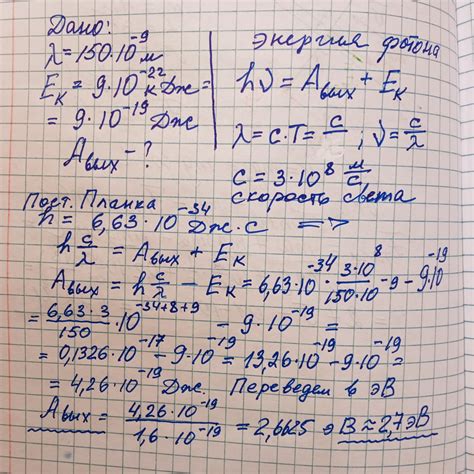 Дано:
λ = 150·10⁻⁹ м
Eк = 9·10⁻²² кДж =
= 9·10⁻¹⁹ Дж
Aвых - ?
Энергия фотона
hν = Aвых + Eк
λ = c·T = c/ ; ν = c/λ
c = 3·10⁸ м/с
скорость света
Пост. Планка
h = 6,63·10⁻³⁴ Дж·с =>
h c/λ = Aвых + Eк
Aвых = h c/λ - Eк = 6,63·10⁻³⁴ · 3·10⁸/150·10⁻⁹ - 9·10⁻¹⁹
= 6,63·3/150 ·10⁻³⁴⁺⁸⁺⁹ - 9·10⁻¹⁹ =
= 0,1326·10⁻¹⁷ - 9·10⁻¹⁹ = 13,26·10⁻¹⁹ - 9·10⁻¹⁹ =
= 4,26·10⁻¹⁹ Дж. Переведем в эВ
Aвых = 4,26·10⁻¹⁹/1,6·10⁻¹⁹ = 2,6625 эВ ≈ 2,7 эВ